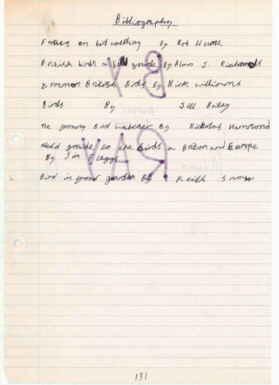 Bibliography
on bird watching by Rob Hume
British birds a guide By Alan J. Richards
Common British Birds By Nick Williams
Birds By Jill Bailey
The young Bird watcher By Nicholas Hammond
field guide to the Birds in Britain and Europe
By Jim Flegg
Bird in your garden By Keith
BY
RAY
131